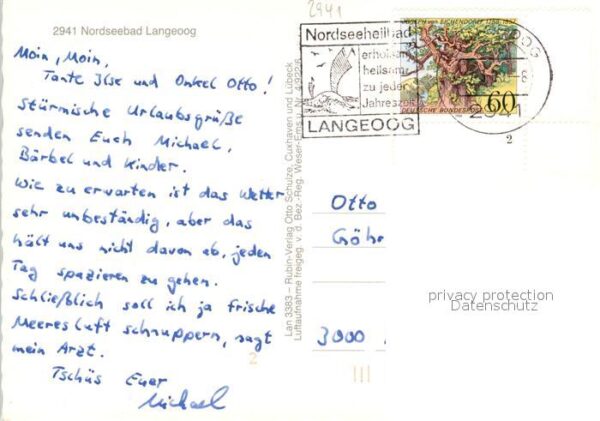 2941 Nordseebad Langeoog
2941
Moin, Moin,
Tante Ilse und Onkel Otto!
Stürmische Urlaubsgrüße
senden Euch Michael,
Bärbel und Kinder.
Wie zu erwarten ist das Wetter
sehr unbeständig, aber das
hält uns nicht davon ab, jeden
Tag spazieren zu gehen.
Schließlich soll ich ja frische
Meeresluft schnuppern, sagt
mein Arzt.
Tschüs Euer
Michael
2
Lan 3383 – Rubin-Verlag Otto Schulze, Cuxhaven und Lübeck
Luftaufnahme freigeg. v. d. Bez.-Reg. Weser-Ems u. Nr.
Nordseeheilbad
erholsam
heilsam
zu jeder
Jahreszeit
LANGEOOG
JOSEPH VON EICHENDORFF
60
DEUTSCHE BUNDESPOST
OOG
2941
2
Otto
Göhr
3000
privacy protection
Datenschutz